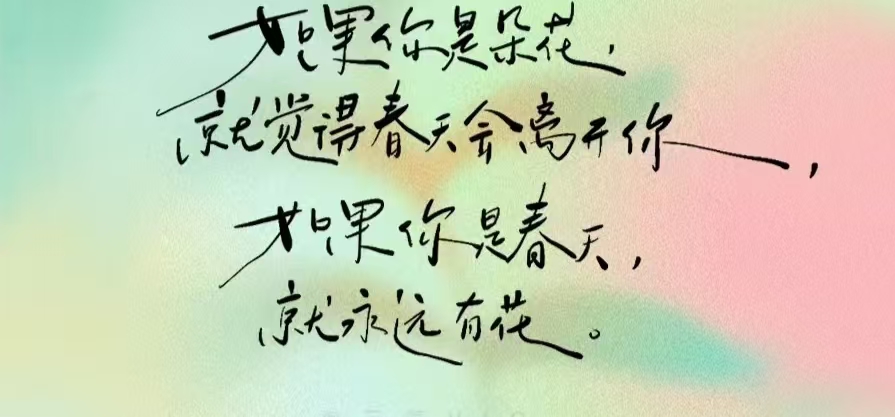 如果你是朵花，
就觉得春天会离开你，
如果你是春天，
就永远有花。